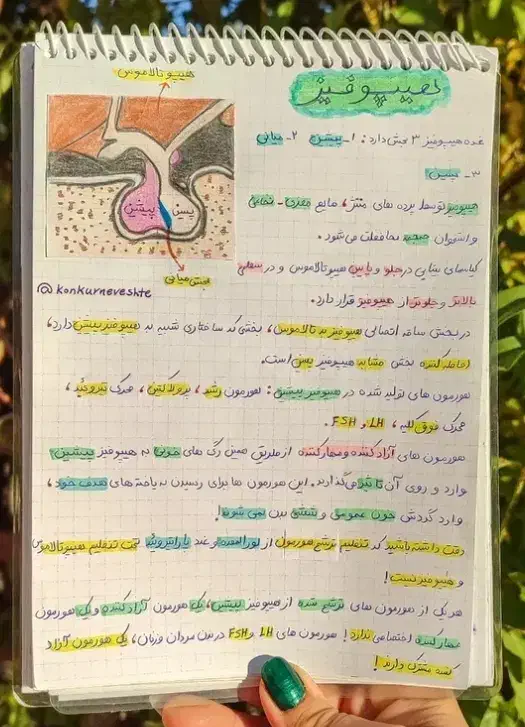 هیپوتالاموس
هیپوفیز
غده هیپوفیز ۳ بخش دارد: ۱- پیشین ۲- میانی
۳- پسین
پیشین
پسین
بخش میانی
@konkurneveshte
هیپوفیز توسط پرده های مننژ، مایع مغزی - نخاعی
و استخوان جمجمه محافظت می شود.
کیاسمای بینایی در جلو و پایین هیپوتالاموس و در سطحی
بالاتر و جلوتر از هیپوفیز قرار دارد.
در بخش ساقه اتصالی هیپوفیز به تالاموس، بخشی که ساختاری شبیه به هیپوفیز پیشین دارد،
احاطه کننده بخش مشابه هیپوفیز پسین است.
هورمون های تولید شده در هیپوفیز پیشین: هورمون رشد، پرولاکتین، محرک تیروئید،
محرک فوق کلیه، LH و FSH.
هورمون های آزاد کننده و مهار کننده از طریق همین رگ های خونی به هیپوفیز پیشین
وارد و روی آن تاثیر می گذارند. این هورمون ها برای رسیدن به یاخته های هدف خود،
وارد گردش خون عمومی و شش بین نمی شوند!
دقت داشته باشید که تنظیم ترشح هورمون از لوزالمعده و غدد پاراتیروئید تحت تنظیم هیپوتالاموس
و هیپوفیز نیست!
هر یک از هورمون های ترشح شده از هیپوفیز پیشین، یک هورمون آزاد کننده و یک هورمون
مهار کننده اختصاصی ندارد! هورمون های LH و FSH در بدن مردان و زنان، یک هورمون آزاد
کننده مشترک دارند!